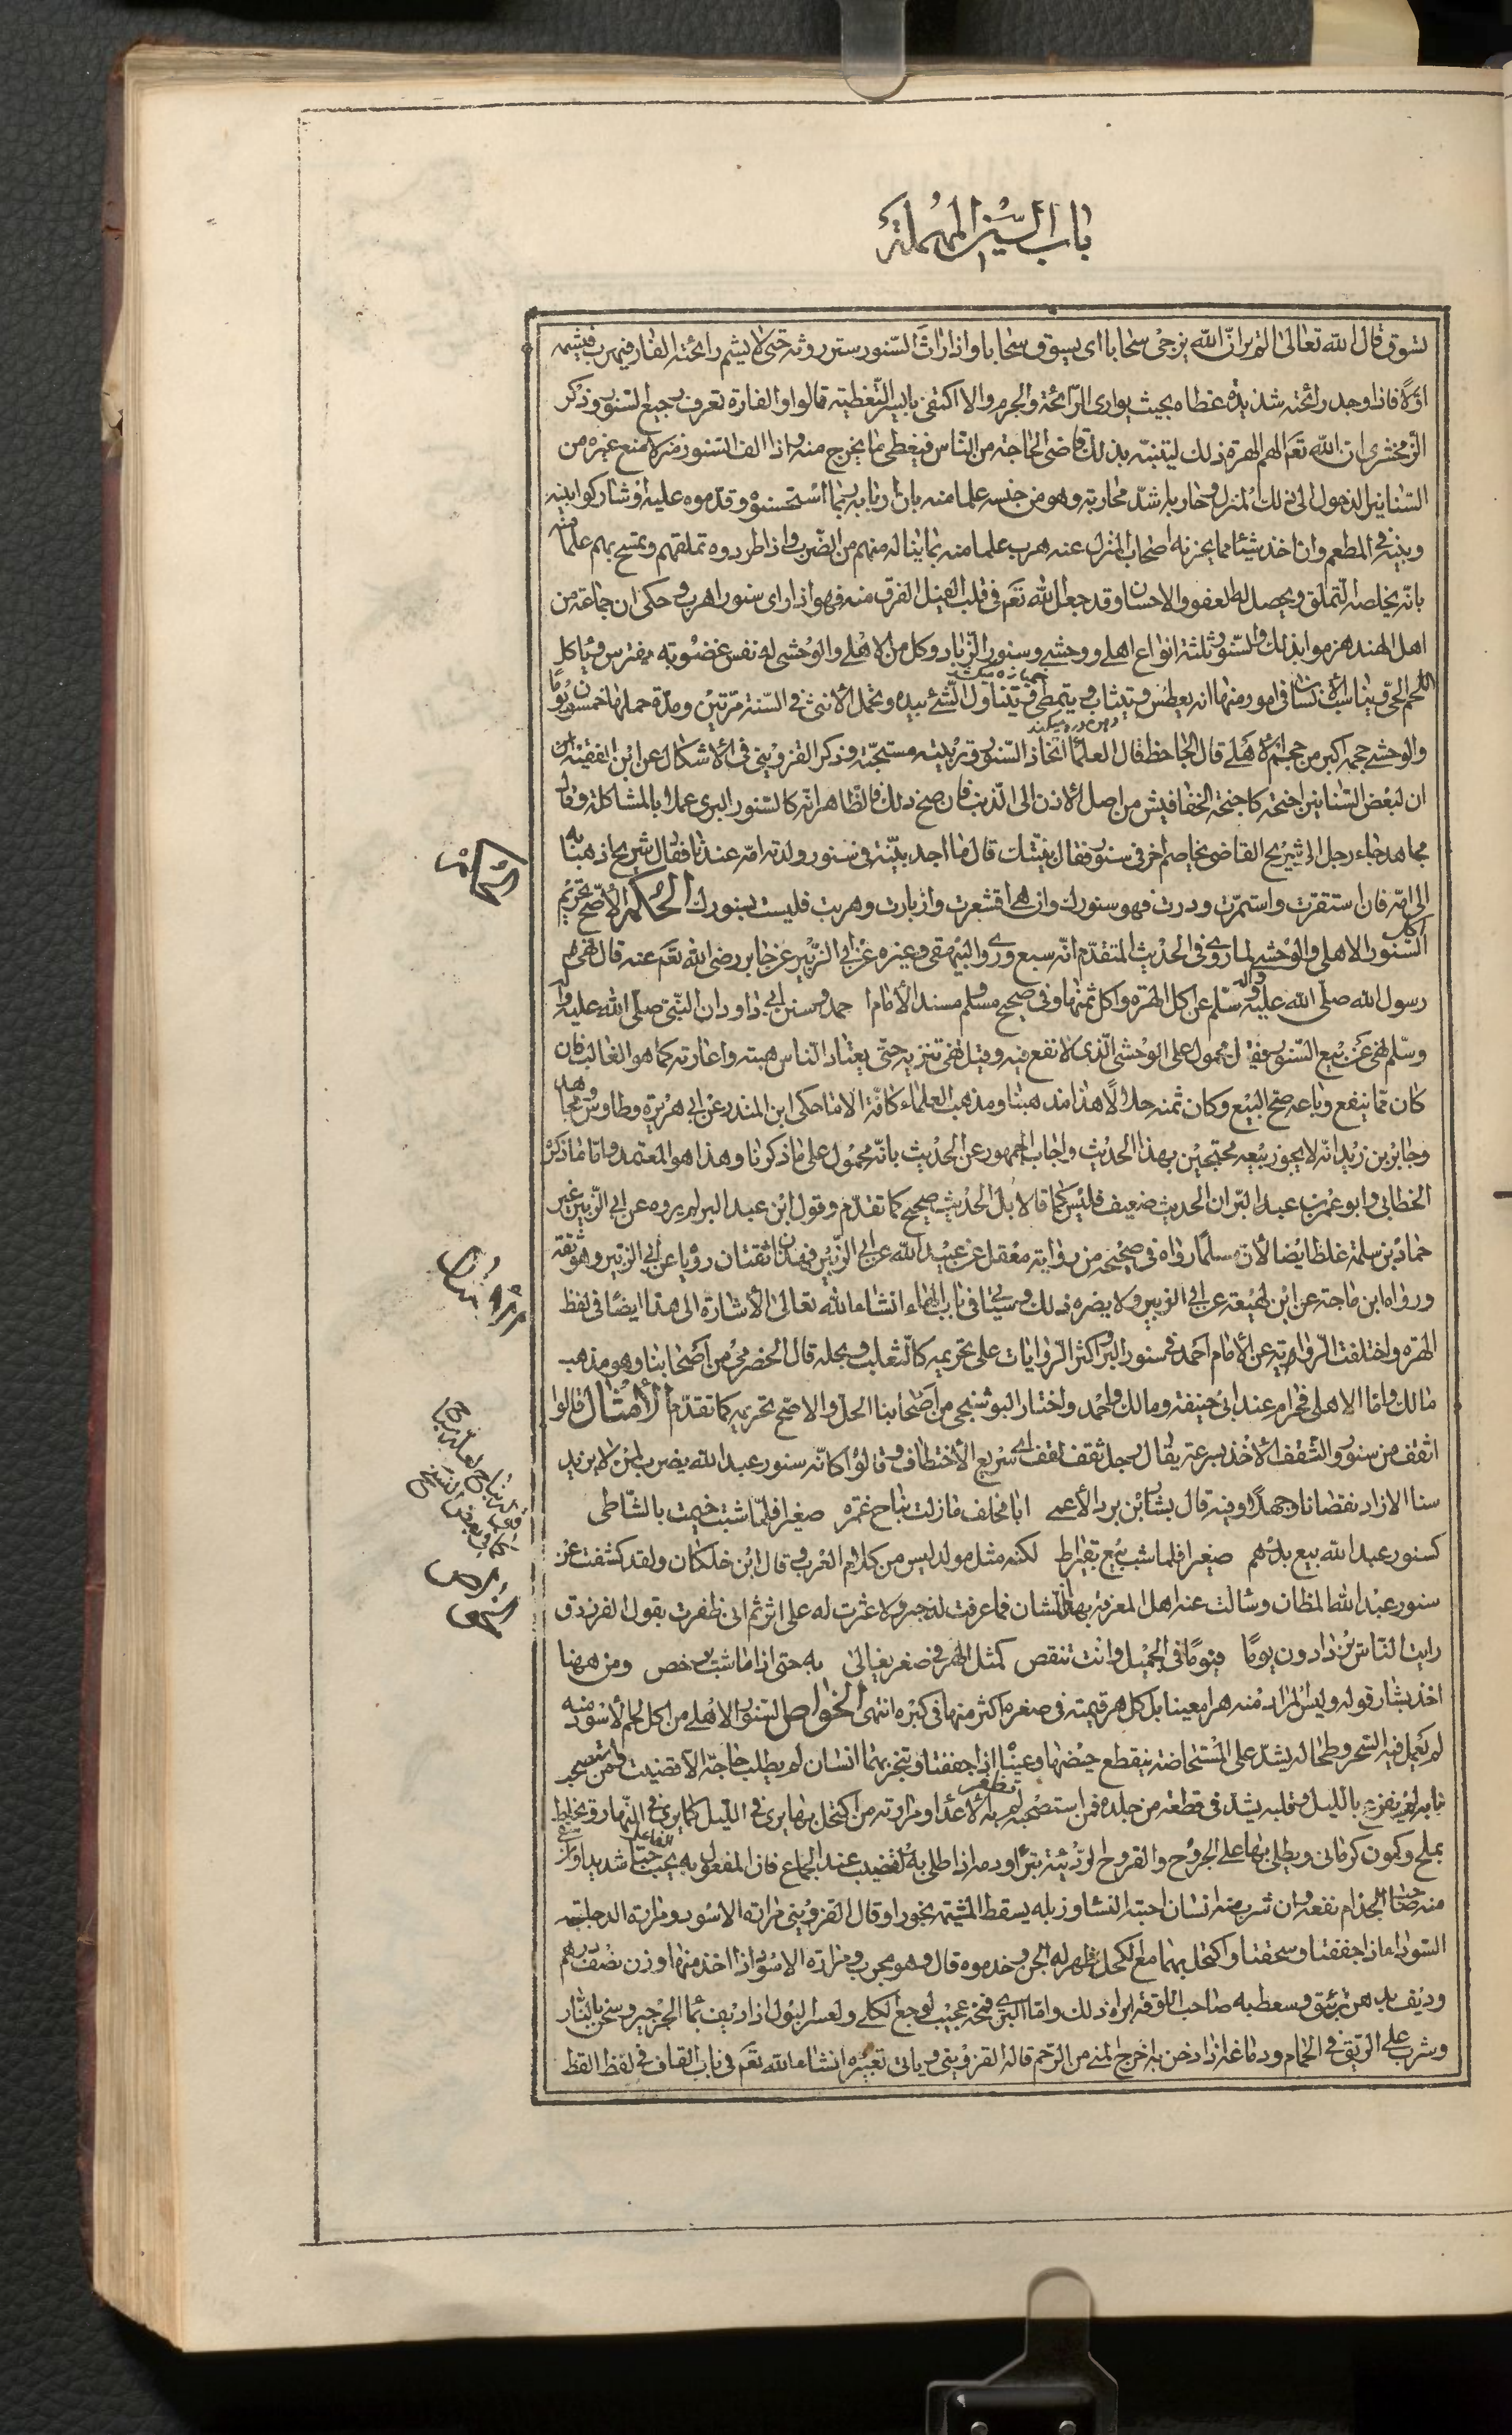 باب السّين المهملة
تسوق قال الله تعالى الم تر ان الله يزجى سحابا اى يسوق سحابا واذا راث السنور ستر روثه حتى لا يشم رائحته الفار فيهرب فيشمه
اوّلا فاذا وجد رائحته شديدة غطاه بحيث يوارى الرائحة والجرم والا اكتفى بايسر التغطية قالوا والفارة تعرف رجيع السنور وذكر
الزمخشرى ان الله تعم الهم الهرة ذلك ليتنبه بذلك قاضى الحاجة من الناس فيغطى ما يخرج منه واذا الف السنور منزلا منع غيره من
السنانير الدخول الى ذلك المنزل وحاربه اشد محاربة وهو من جنسه علما منه بان اربابه ربما استحسنوه وقدموه عليه او شاركوا بينه
وبينه فى المطعم وان اخذ شيئا مما يحزنه اصحاب المنزل عنه هرب علما منه بما يناله منهم من الضرب واذا طردوه تملقهم وتمسح بهم علما منه
بانه يخلصه التملق ويحصل له العفو والاحسان وقد جعل الله تعم فى قلب الفيل الفرق منه فهو اذا راى سنورا هرب وحكى ان جماعة من
اهل الهند هزموا بذلك والسنور ثلثة انواع اهلى ووحشى وسنور الزباد وكل من الاهلى والوحشى له نفس غضوبة يفترس وياكل
اللحم الحى ويناسب الانسان فى امور منها انه يعطس ويتثاب ويتمطى ويتناول الشئ بيده وتحمل الانثى فى السنة مرتين ومدة حملها خمسون يوما
والوحشى حجمه اكبر من حجم الاهلى قال الجاحظ قال العلماء اتخاذ السنور وتربيته مستحبة وذكر القزوينى فى الاشكال عن ابن الفقيه
ان لبعض السنانير اجنحة كاجنحة الخفافيش من اصل الاذن الى الذنب فان صح ذلك فالظاهر انه كالسنور البرى عملا بالمشاكلة وقال
مجاهد جاء رجل الى شريح القاضى يخاصم اخر فى سنور فقال بينتك قال ما اجد بينة فى سنور ولدته امه عندنا فقال شريح اذهبا به
الى امه فان استقرت واستمرت ودرت فهو سنورك وان هى اقشعرت وازبارت وهربت فليست بسنورك الحكم الاصح تحريم اكل
السنور الاهلى والوحشى لما روى فى الحديث المتقدم انه سبع وروى البيهقى وغيره عن ابى الزبير عن جابر رضى الله تعم عنه قال نهى
رسول الله صلى الله عليه واله وسلم عن اكل الهرة واكل ثمنها وفى صحيح مسلم ومسند الامام احمد وسنن ابى داود ان النبى صلى الله عليه واله
وسلم نهى عن بيع السنور فقيل محمول على الوحشى الذى لا نفع فيه وقيل نهى تنزيه حتى يعتاد الناس هبته واعارته كما هو الغالب فان
كان مما ينفع وباعه صح البيع وكان ثمنه حلالا هذا مذهبنا ومذهب العلماء كافة الا ما حكى ابن المنذر عن ابى هريرة وطاوس ومجاهد
وجابر بن زيد انه لا يجوز بيعه محتجين بهذا الحديث واجاب الجمهور عن الحديث بانه محمول على ما ذكرنا وهذا هو المعتمد واما ما ذكره
الخطابى وابو عمر بن عبد البر ان الحديث ضعيف فليس كما قالا بل الحديث صحيح كما تقدم وقول ابن عبد البر لم يروه عن ابى الزبير غير
حماد بن سلمة غلط ايضا لان مسلما رواه فى صحيحه من رواية معقل عن عبيد الله عن ابى الزبير فهذان ثقتان رويا عن ابى الزبير وهو ثقة
ورواه ابن ماجة عن ابن لهيعة عن ابى الزبير ولا يضره ذلك وسياتى فى باب الهاء انشاء الله تعالى الاشارة الى هذا ايضا فى لفظ
الهرة واختلفت الرواية عن الامام احمد فى سنور البر واكثر الروايات على تحريمه كالثعلب وبحله قال الخضرمى من اصحابنا وهو مذهب
مالك واما الاهلى فحرام عند ابى حنيفة ومالك واحمد واختار البوشنجى من اصحابنا الحل والاصح تحريمه كما تقدم الامثال قالوا
اثقف من سنور والثقف الاخذ بسرعة يقال رجل ثقف لقف اى سريع الاختطاف وقالوا كانه سنور عبد الله يضرب لمن لا يزيد
سنا الا زاد نقصانا وجهلا وفيه قال بشار بن برد الاعمى ابا مخلف ما زلت نباح غمرة صغيرا فلما شبت خيمت بالشاطى
كسنور عبد الله بيع بدرهم صغيرا فلما شب بيع بقيراط لكنه مثل مولد ليس من كلام العرب وقال ابن خلكان ولقد كشفت عن
سنور عبد الله المظان وسالت عنه اهل المعرفة بهذا الشان فما عرفت له خبرا ولا عثرت له على اثر ثم انى ظفرت بقول الفرزدق
رايت الناس يزدادون يوما فيوما فى الجميل وانت تنقص كمثل الهر فى صغر يغالى به حتى اذا ما شب يرخص ومن ههنا
اخذ بشار قوله وليس المراد منه هرا معينا بل كل هر قيمته فى صغره اكثر منها فى كبره انتهى الخواص السنور الاهلى من اكل لحم الاسود منه
لم يعمل فيه السحر وطحاله يشد على المستحاضة ينقطع حيضها وعيناه اذا جففتا وتبخر بهما انسان لم يطلب حاجة الا قضيت ومن استصحب
نابه لم يفزع بالليل وقلبه يشد فى قطعة من جلده فمن استصحبه لم تظفر به الاعداء ومرارته من اكتحل بها يرى فى الليل كما يرى فى النهار وتخلط
بملح وكمون كرمانى ويطلى بها على الجروح والقروح الرديئة تبرا ودمه اذا طلى به القضيب عند الجماع فان المفعول به يحب الفاعل حبا شديدا
منه صاحب الجذام نفعه وان شرب منه انسان احبته النساء وزبله يسقط المشيمة بخورا وقال القزوينى مرارة الاسود ومرارة الدجاجة
السوداء اذا جففتا وسحقتا واكتحل بهما مع الكحل يظهر له الجن وخدموه قال وهو مجرب ومرارة الاسود اذا اخذ منها وزن نصف درهم
وديف بدهن زيبق وسعط به صاحب اللوقة ابراه ذلك واما البرى فمخه عجيب لوجع الكلى ولعسر البول اذا ديف بماء الجرجير وسخن بالنار
وشرب على الريق فى الحمام ودماغه اذا دخن به اخرج المنى من الرحم قاله القزوينى وياتى تعبيره انشاء الله تعم فى باب القاف فى لفظ القط